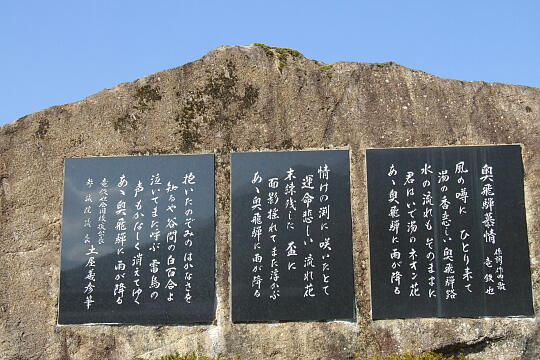 奥飛騨慕情
作詞 作曲 歌
竜 鉄也
風の噂に ひとり来て
湯の香恋しい 奥飛騨路
水の流れも そのままに
君はいで湯の ネオン花
あゝ奥飛騨に 雨が降る
情けの渕に 咲いたとて
運命悲しい 流れ花
未練残した 盃に
面影揺れて また浮かぶ
あゝ奥飛騨に 雨が降る
抱いたのぞみの はかなさを
知るや谷間の 白百合よ
泣いてまた呼ぶ 雷鳥の
声もかなしく 消えてゆく
あゝ奥飛騨に 雨が降る
竜鉄也全国後援会長
参議院議長 土屋義彦筆